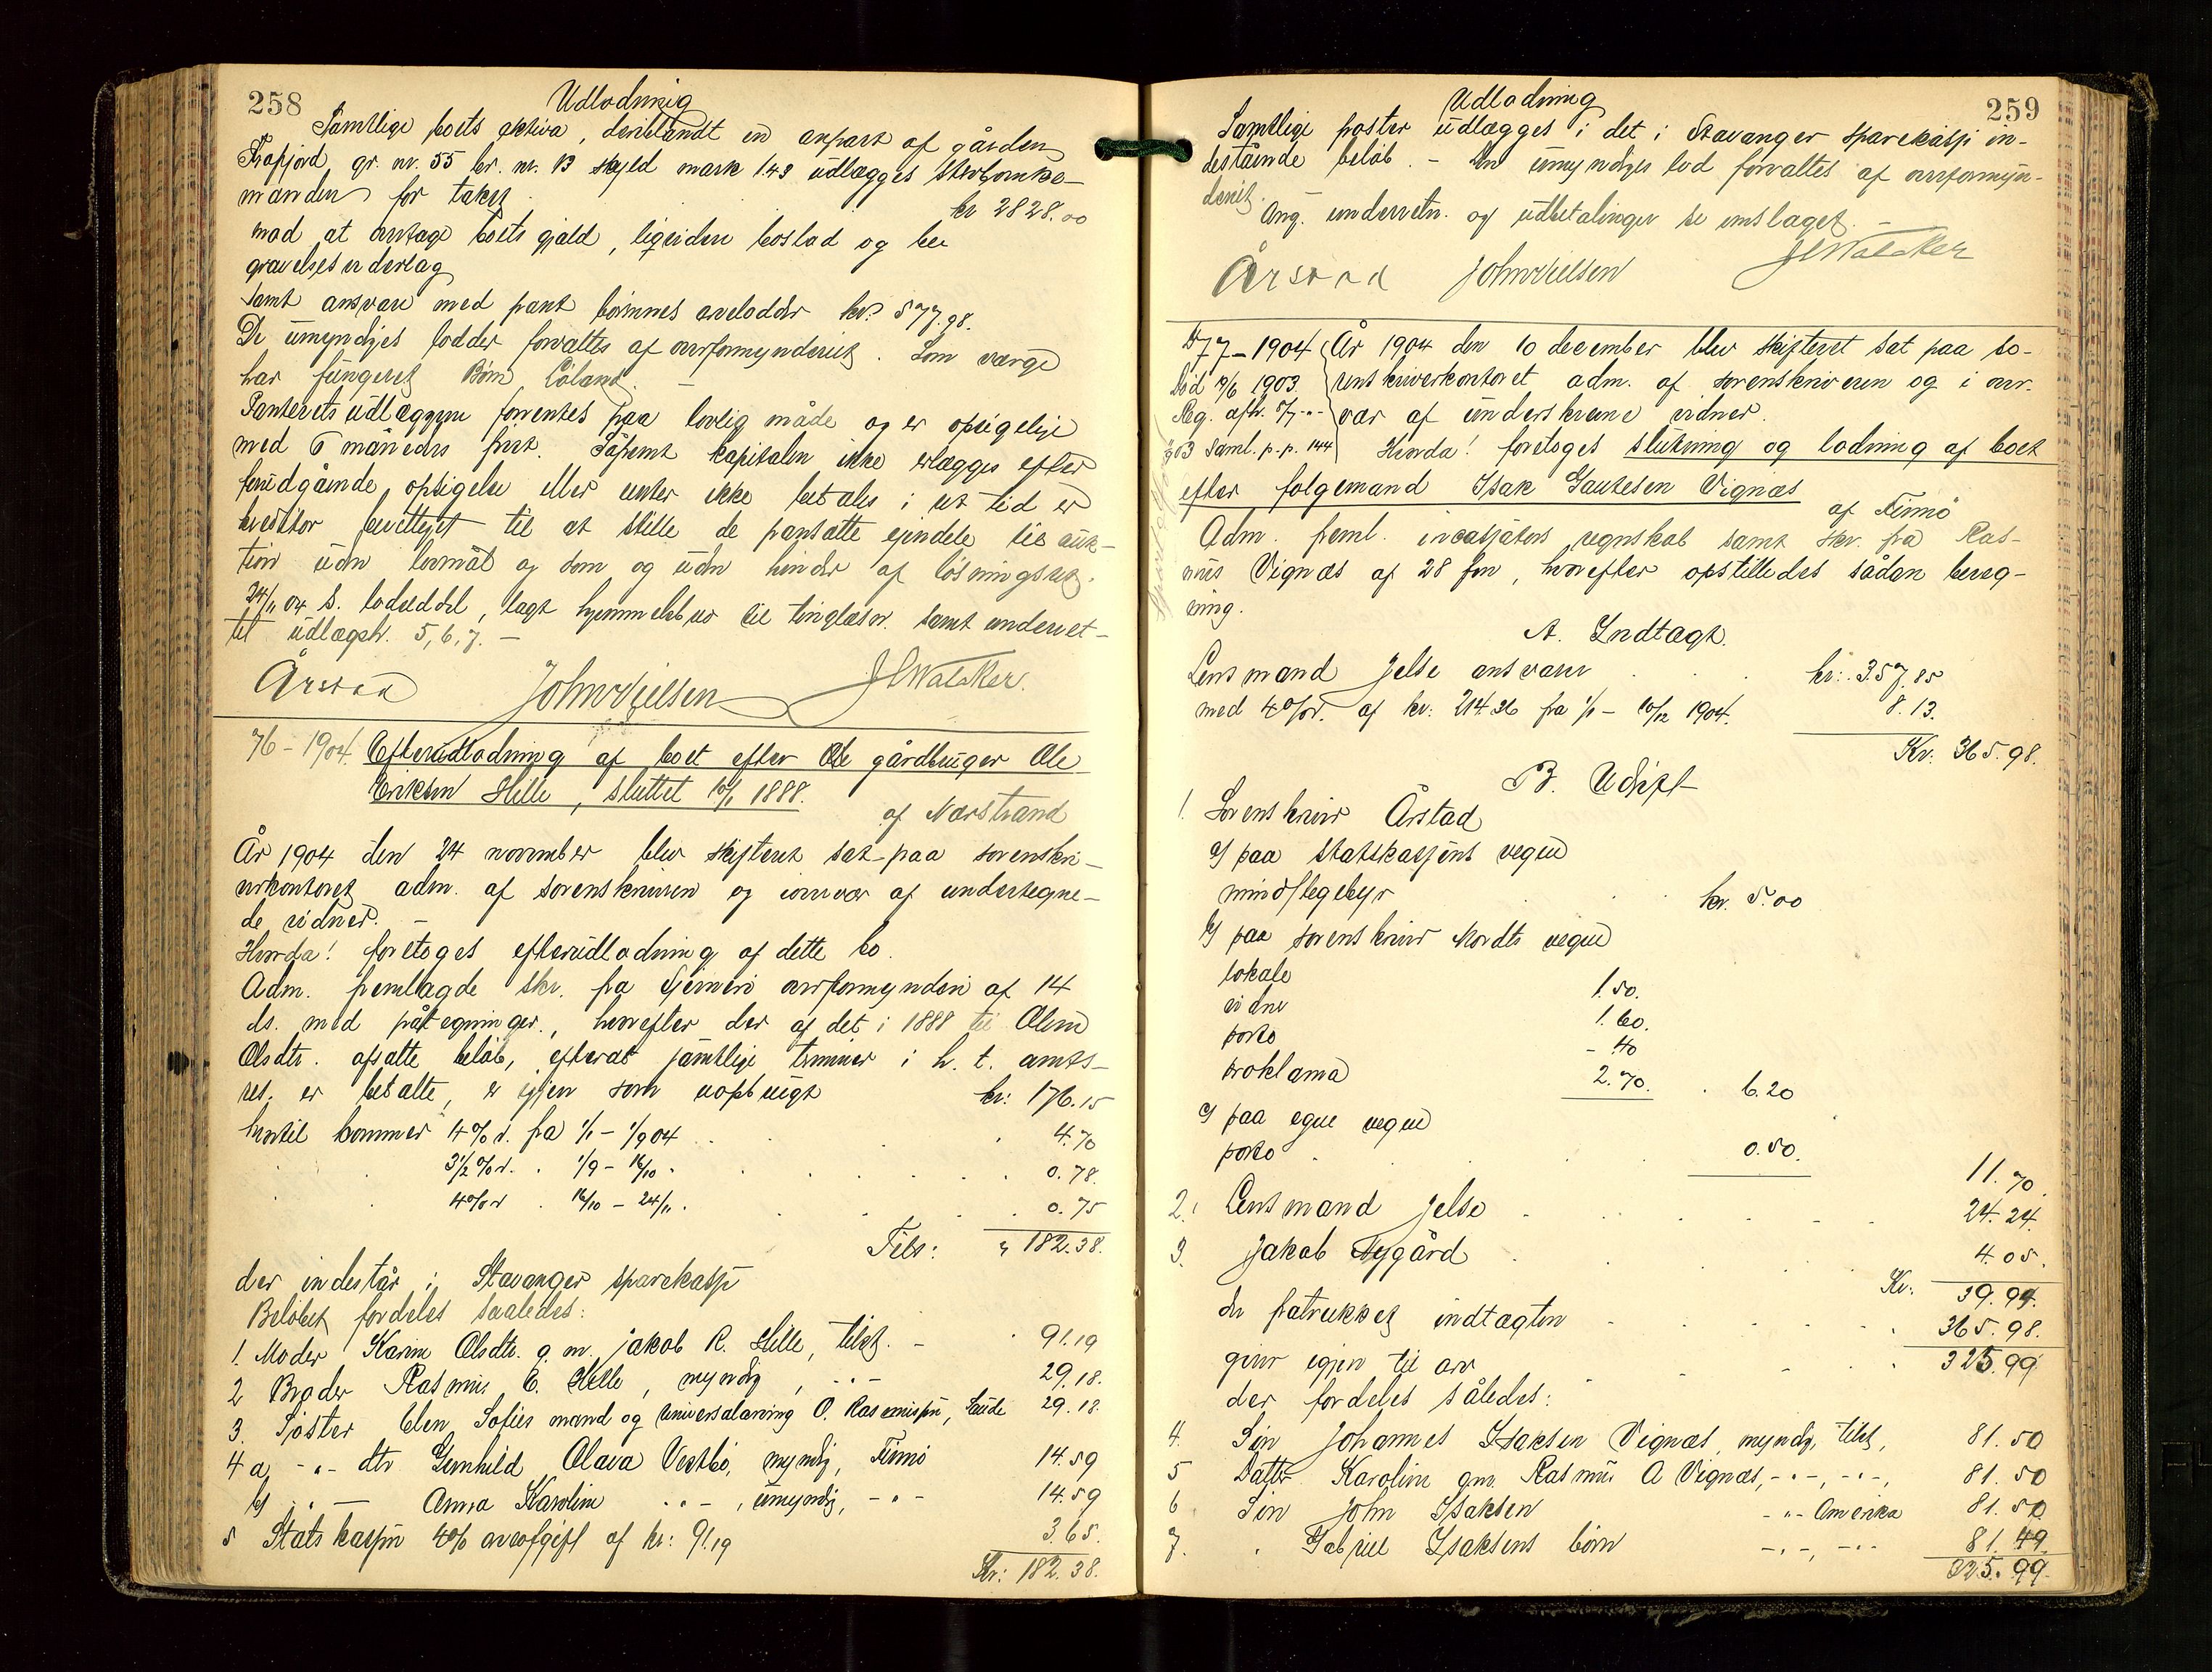 258
Udlodning
Samtlige boets aktiva, deriblandt en anpart af gården
Frafjord gr. nr. 55 br. nr. 13 skyld mark 1.43 udlægges
manden for takst kr 2828.00
mod at antage boets gjæld, ligeiden boslod og be
gravelsesunderlag
samt ansvare med pant børnenes arvelodder kr: 577.98.
De umyndiges lodder forvaltes af overformynderiet. Som værge
har fungeret Børn Eöland.
Panteretsudlæggene forrentes paa lovlig måde og er opsigelige
med 6 måneders frist. Såfremt kapitalen ikke erlægges efter
forudgående opsigelse eller renter ikke betales i ret tid er
kreditor berettiget til at stille de pansatte eiendele til auk-
tion uden lovmål og dom og uden hinder af løsningsret.
24/11 04 S. lodseddel, lagt hjemmelsbrev til tinglæsn. samt underret-
til udlægsh. 5, 6, 7. –
Årstad John Nielsen J E Walcker.
76 – 1904. Efterudlodning af boet efter Ole gårdbruger Ole
Eriksen Hille, sluttet 10/1 1888.
af Nærstrand
År 1904 den 24 november blev skifteret sat paa sorenskri-
verkontoret adm. af sorenskriveren og i overvær af undertegne-
de vidner. –
Hvorda! foretoges efterudlodning af dette bo.
Adm. fremlagde skr. fra overformynderi af 14
ds. med påtegninger, hvorefter der af det i 1888 til Olene
Olsdtr. afsatte beløb, efterat samtlige terminer i h. t. amts-
res. er betalte, er igjen som uopbrugt kr: 176.15
hertil kommer 4% r. fra 1/1 – 1/9 04 4.70
3 1/2 % r. . 1/9 – 16/10 . 0.78.
4% r . 16/10 – 24/11 . 0.75
Tils: " 182.38.
der indestår i Stavanger sparekasse
Beløbet fordeles saaledes:
1. Moder Karine Olsdtr. g. m. Jakob R. Hille, tilst. – 91.19
2 Broder Rasmus E. Hille, myndig, -"- 29.18.
3. Søster Elen Sofies mand og universalarving O. Rasmussen, Saude 29.18
4 a -"- dtr Gunhild Olava Vestbö, myndig, Finnö 14.59
b) -"- Anna Karoline -"-, umyndig, -"- 14.59
5 Statskassen 4% arveafgift af kr: 91.19 3.65.
Kr: 182.38.
259
Udlodning
Samtlige poster udlægges i det i Stavanger sparekasse in-
destående beløb. – Den umyndiges lod forvaltes af overformyn-
deriet.
Ang. underretn. og udbetalinger se omslaget. –
Årstad John Nielsen J E Walcker
77 – 1904 År 1904 den 10 december blev skifteret sat paa so-
Død 1903. renskriverkontoret adm. af sorenskriveren og i over-
Reg. afh. vær af underskrevne vidner.
Saml. p. p. 144 Hvorda! foretoges slutning og lodning af boet
efter følgemand Isak Gautesen Vignæs
af Finnö
Adm. freml. incassators regnskab samt skr. fra Ras-
mus Vignæs af 28 f m, hvorefter opstilledes sådan bereg-
ning.
A. Indtægt.
Lensmand Jelse ansvarer kr: 357.85
med 4% r. af kr: 214.36 fra 1/1 – 10/12 1904. 8.13.
Kr: 365.98.
B. Udgift
1. Sorenskriver Årstad
a) paa statskassens vegne
mindstegebyr kr. 5.00
b) paa sorenskriver Mordts vegne
lokale 1.50.
vidner 1.60.
porto – 40
proklama 2.70. . 6.20
c) paa egne vegne
porto 0.50.
11.70.
2. Lensmand Jelse 24.24.
3. Jakob Nygård 4.05.
Kr. 39.99.
der fratrukket indtægten 365.98.
giver igjen til arv 325.99
der fordeles således:
4. Søn Johannes Isaksen Vignæs, myndig, tilst, 81.50
5 Datter Karoline gm. Rasmus A Vignæs, -"-, -"-, 81.50
6 Søn John Isaksen -"- Amerika 81.50
7. . Gabriel Isaksens børn -"-, -"- 81.49.
325.99.